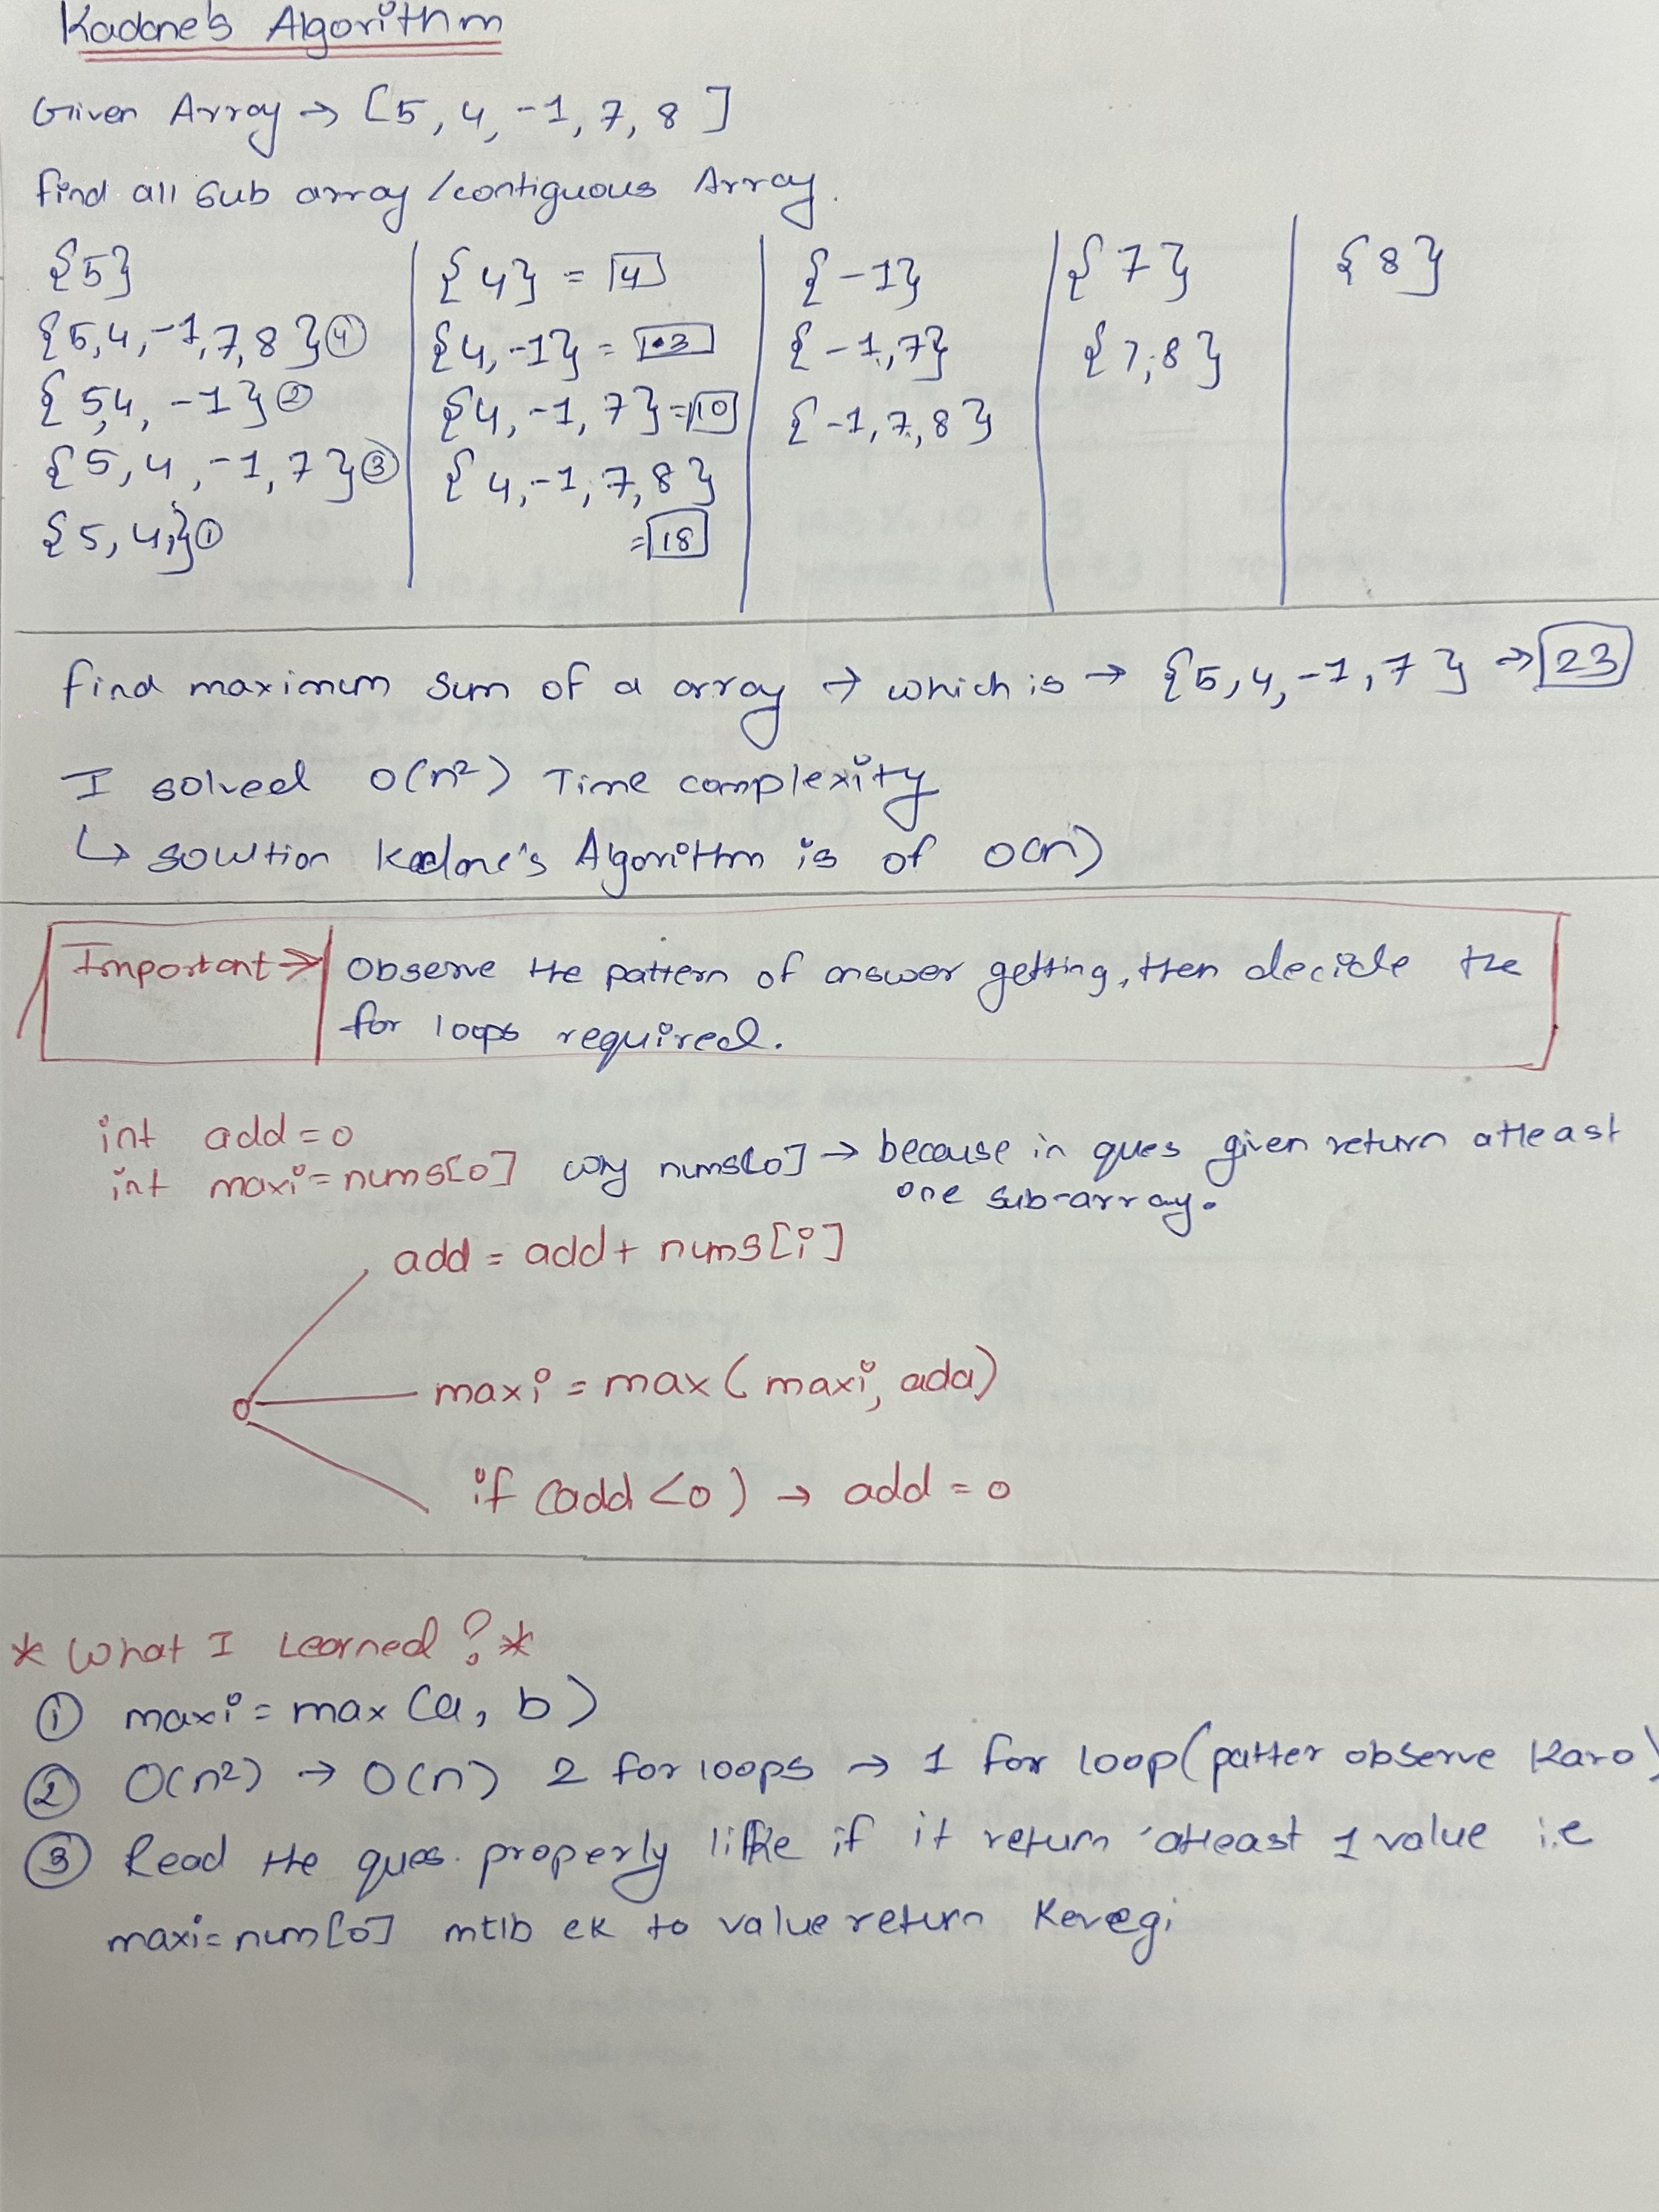 Kadane's Algorithm
Given Array → [5, 4, -1, 7, 8]
find all sub array / contiguous Array.
{5}
{5,4,-1,7,8} ④
{5,4,-1} ②
{5,4,-1,7} ③
{5,4,} ①
{4} = 4
{4,-1} = 3
{4,-1,7} = 10
{4,-1,7,8}
= 18
{-1}
{-1,7}
{-1,7,8}
{7}
{7,8}
{8}
find maximum sum of a array → which is → {5,4,-1,7} → 23
I solved O(n²) Time complexity
↳ solution Kadane's Algorithm is of O(n)
Important → Observe the pattern of answer getting, then decide the
for loops required.
int add = 0
int maxi = nums[0] way nums[0] → because in ques given return atleast
one sub-array.
add = add + nums[i]
maxi = max(maxi, add)
if (add < 0) → add = 0
* What I Learned? *
① maxi = max(a, b)
② O(n²) → O(n) 2 for loops → 1 for loop (patter observe Karo)
③ Read the ques. properly like if it return 'atleast 1 value i.e
maxi = num[0] mtlb ek to value return Karegi